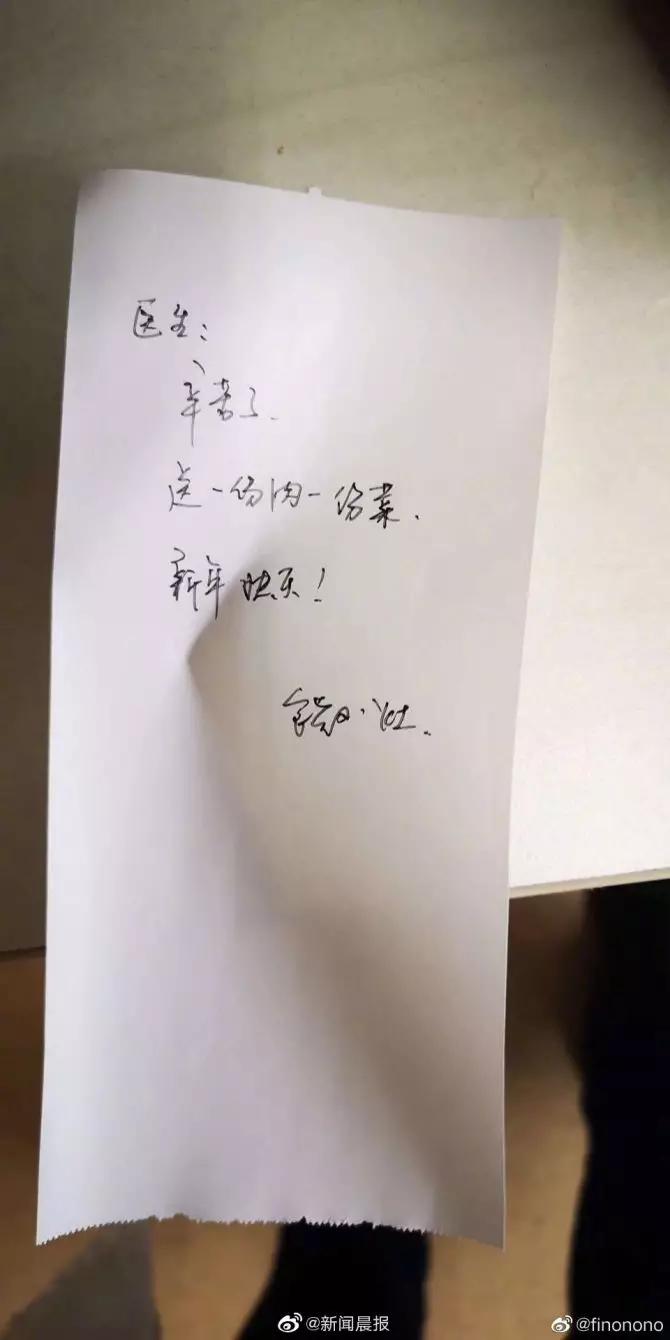 医生：
辛苦了.
送一份肉一份菜.
新年快乐！
小灶.
@新闻晨报
@finonono